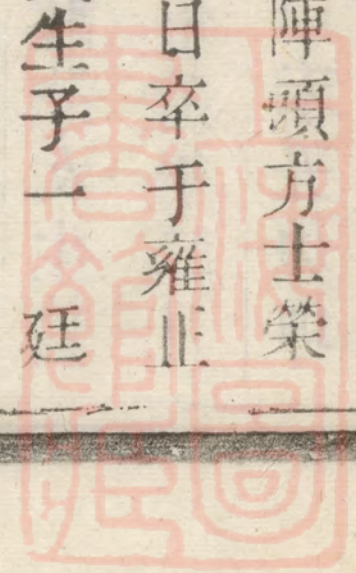 陣頭方士榮
日卒于雍正
生子一　廷